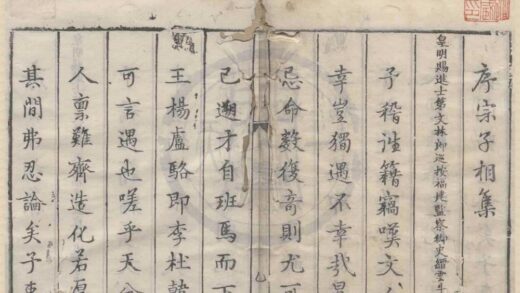 序宗子相集
皇明賜進士第文林郎巡按福建監察御史縉雲
予稽徃籍竊嘆文
幸豈獨遇不幸哉
忌命數復奇則尤可
已遡才自班馬而下
王楊盧駱即李杜韓
可言遇也嗟乎天
人禀難齊造化若
其間弗忍論矣子